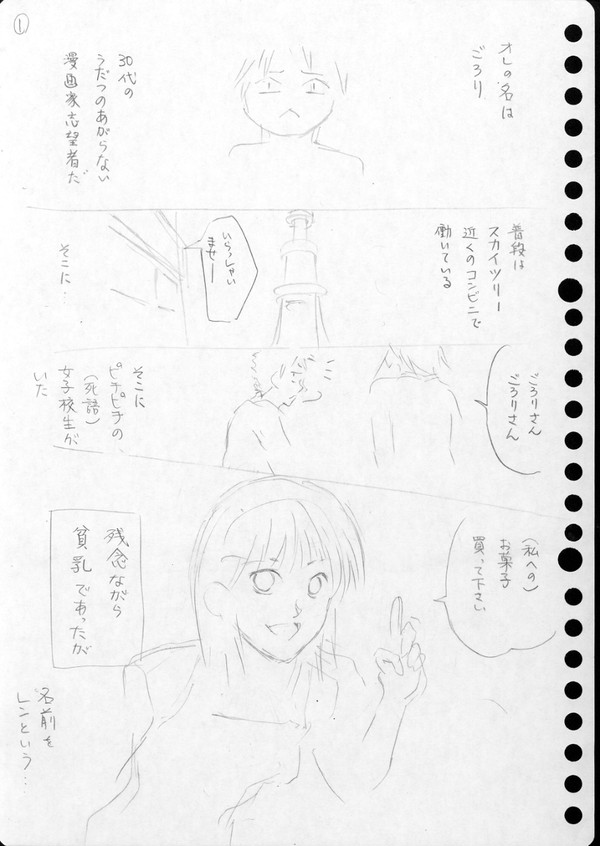 ①
オレの名は
ごろり
30代の
うだつのあがらない
漫画家志望者だ
普段は
スカイツリー
近くのコンビニで
働いている
いらっしゃい
ませー
そこに…
ごろりさん
ごろりさん
そこに
ピチピチの
(死語)
女子校生が
いた
(私への)
お菓子
買って下さい
残念ながら
貧乳であったが
名前を
レンという…